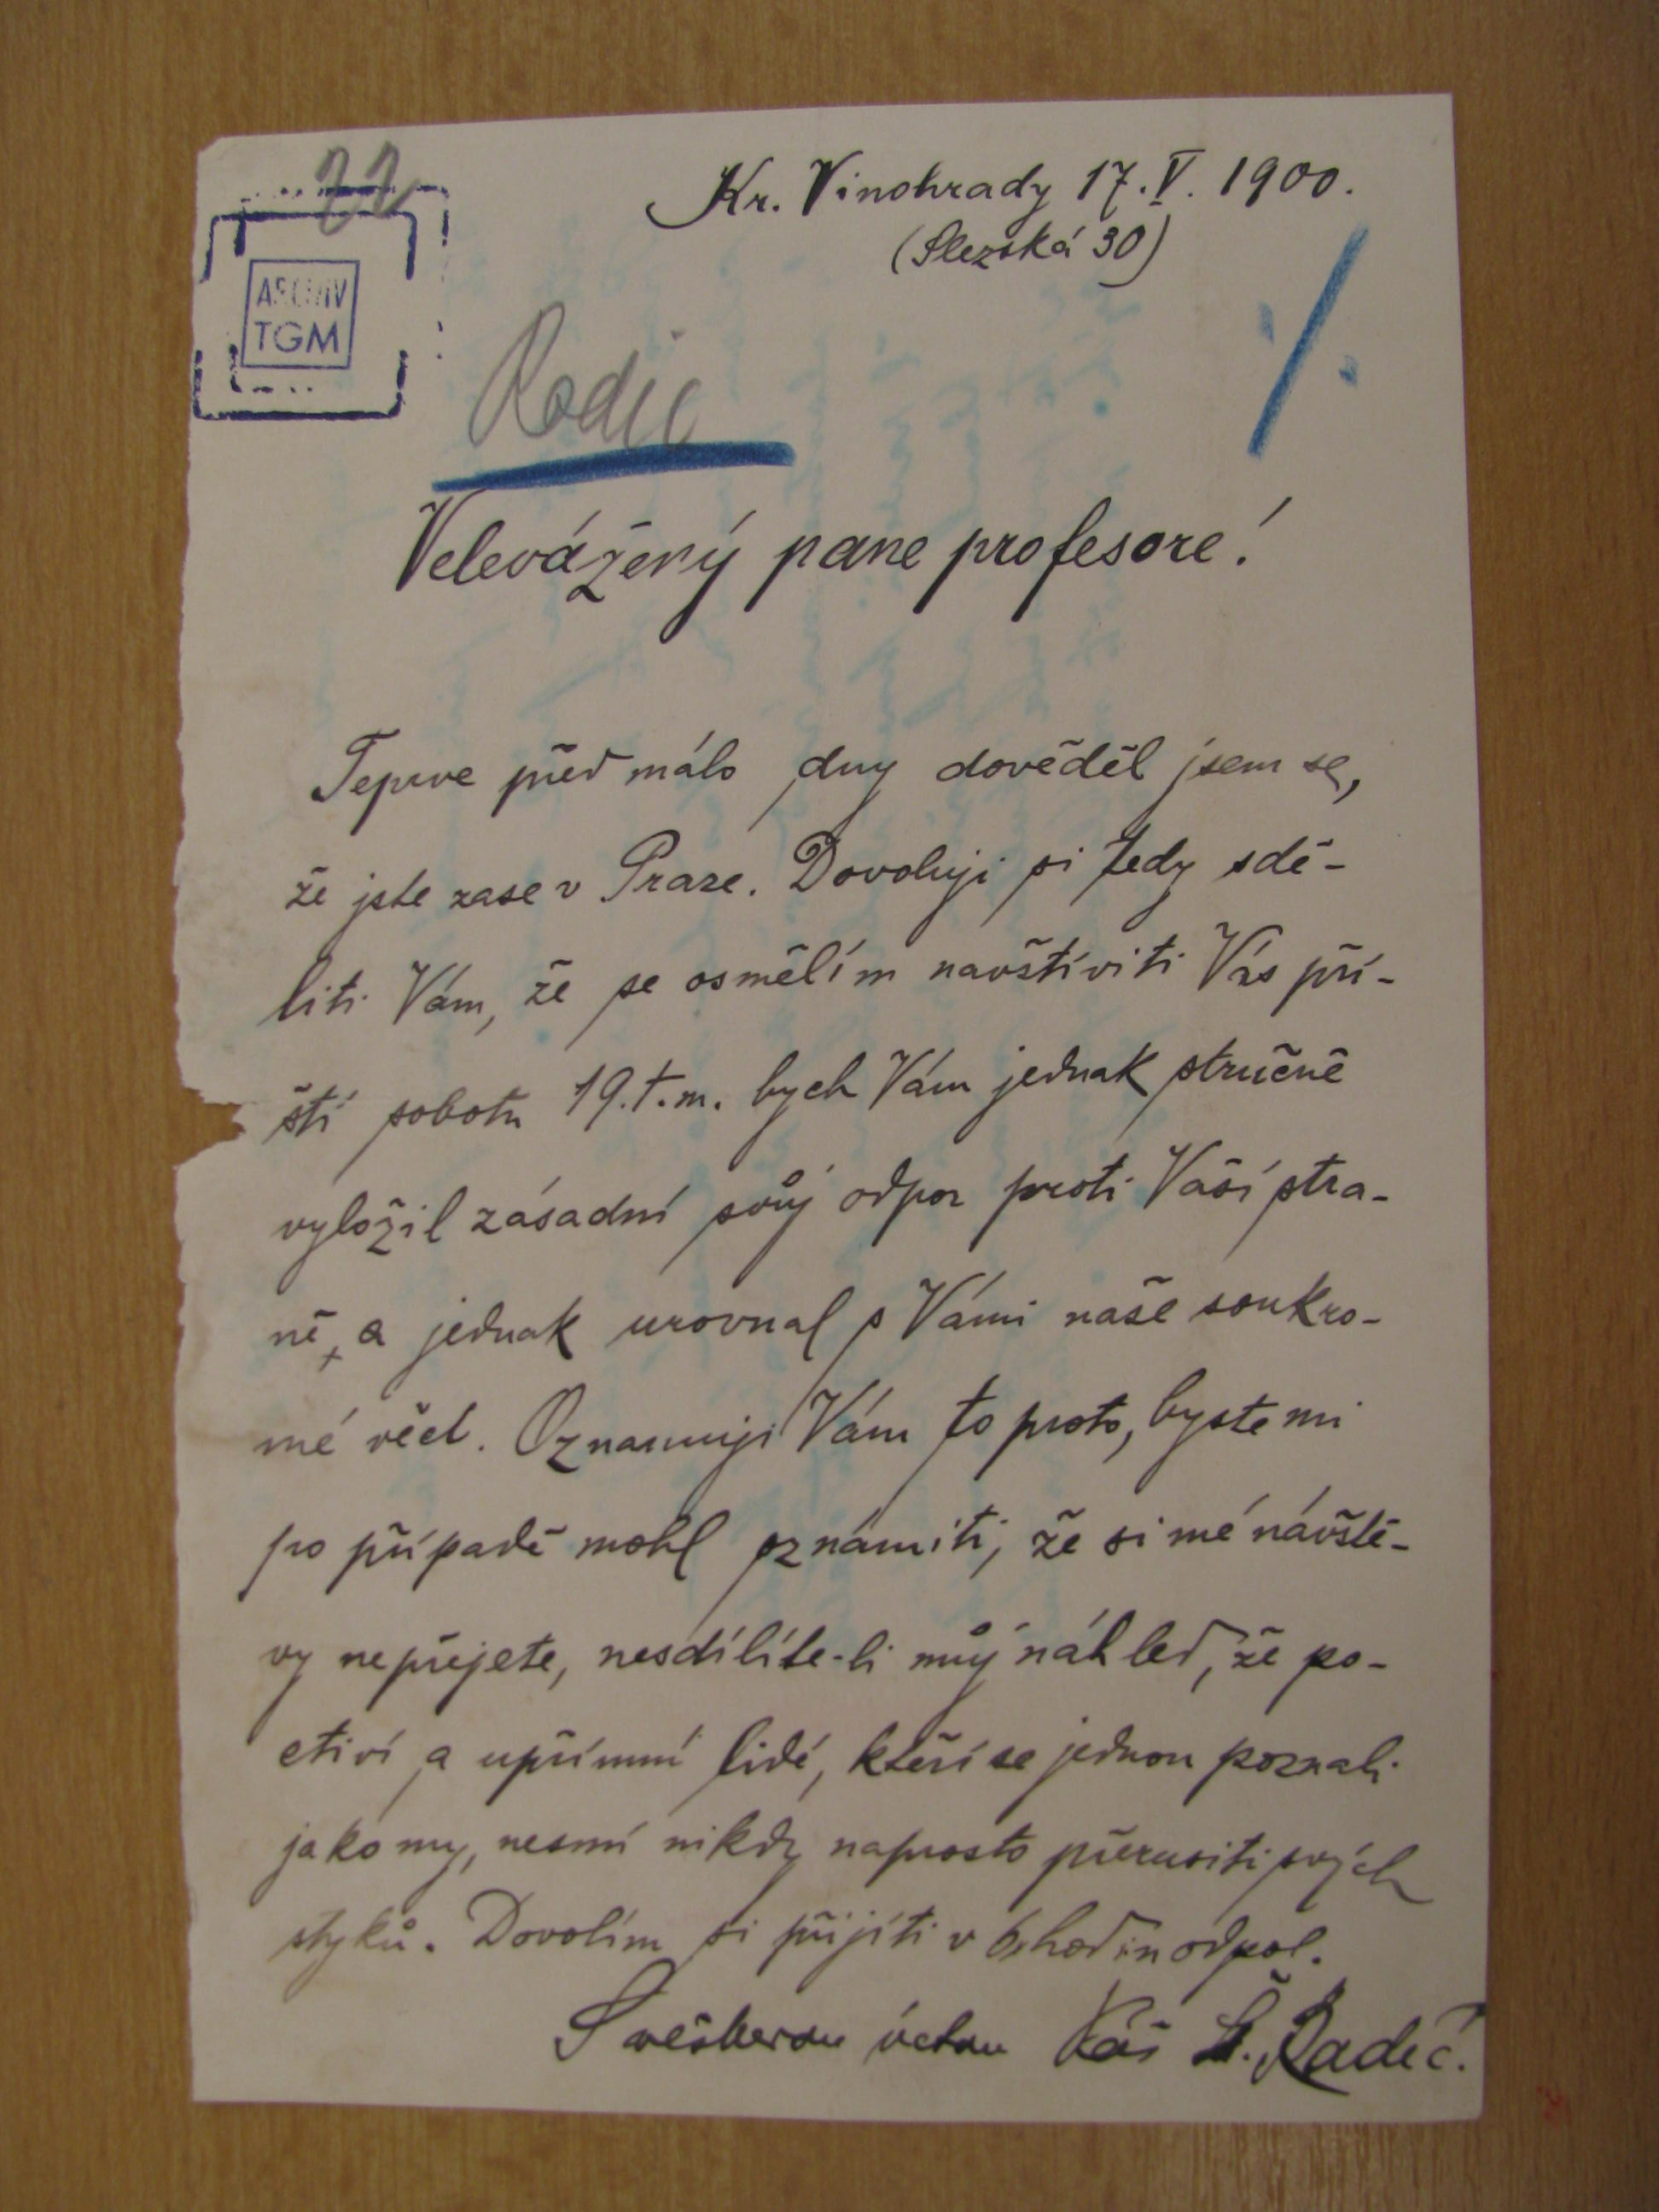 22
Kr. Vinohrady 17.V. 1900.
(Slezská 30)
ARCHIV
TGM
Radić
Velevážený pane profesore!
Teprve před málo dny dověděl jsem se,
že jste zase v Praze. Dovoluji si tedy sdě-
liti Vám, že se osmělím navštíviti Vás pří-
ští sobotu 19.t.m. bych Vám jednak stručně
vyložil zásadní svůj odpor proti Vaší stra-
ně, a jednak urovnal s Vámi naše soukro-
mé věci. Oznamuji Vám to proto, byste mi
po případě mohl oznámiti, že si mé návště-
vy nepřejete, nesdílíte-li můj náhled, že po-
ctiví a upřímní lidé, kteří se jednou poznali
jako my, nesmí nikdy naprosto přerušiti svých
styků. Dovolím si přijíti v 6 hodin odpol.
S veškerou úctou Váš St. Radić.